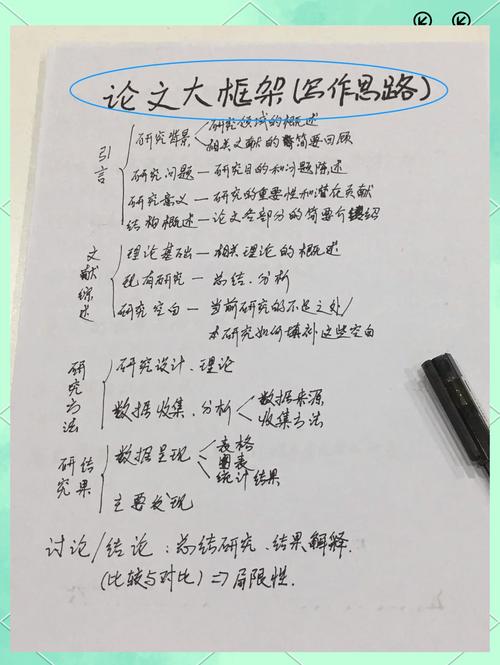 论文大框架(写作思路)
引言
研究背景
研究领域的概述
相关文献的简要回顾
研究问题—研究目的和问题陈述
研究意义—研究的重要性和潜在贡献
结构概述—论文各部分的简要介绍
文献综述
理论基础—相关理论的概述
现有研究—总结.分析
研究空白—当前研究的不足之处/
本研究如何填补这些空白
研究方法
研究设计.理论
数据收集.分析
数据来源
收集方法
研究结果
数据呈现
表格
图表
统计结果
主要发现
讨论/结论:总结研究.结果解释.
(比较与对比)⇒局限性.